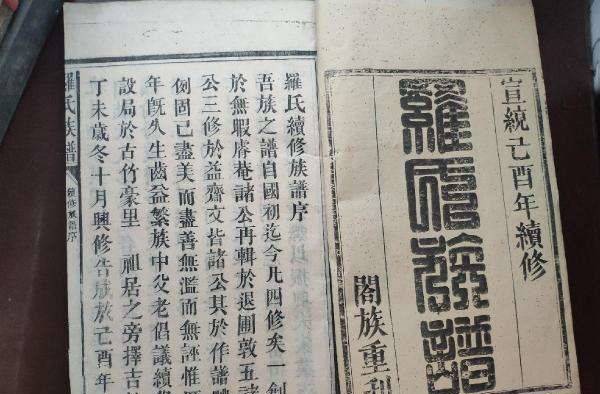 宣統己酉年續修
羅氏族譜
閤族重
羅氏續修族譜序
吾族之譜自國初迄今凡四修矣一創
於無暇菴諸公再輯於退圃敦五諸
公三修於益齋文皆諸公其於作譜
例固已盡美而盡善無濫而無誣惟
年既久生齒益繁族中父老倡議續修
設局於古竹豪里 祖居之旁擇吉
丁未歲冬十月興修告成於己酉年
羅氏族譜
續修族譜序